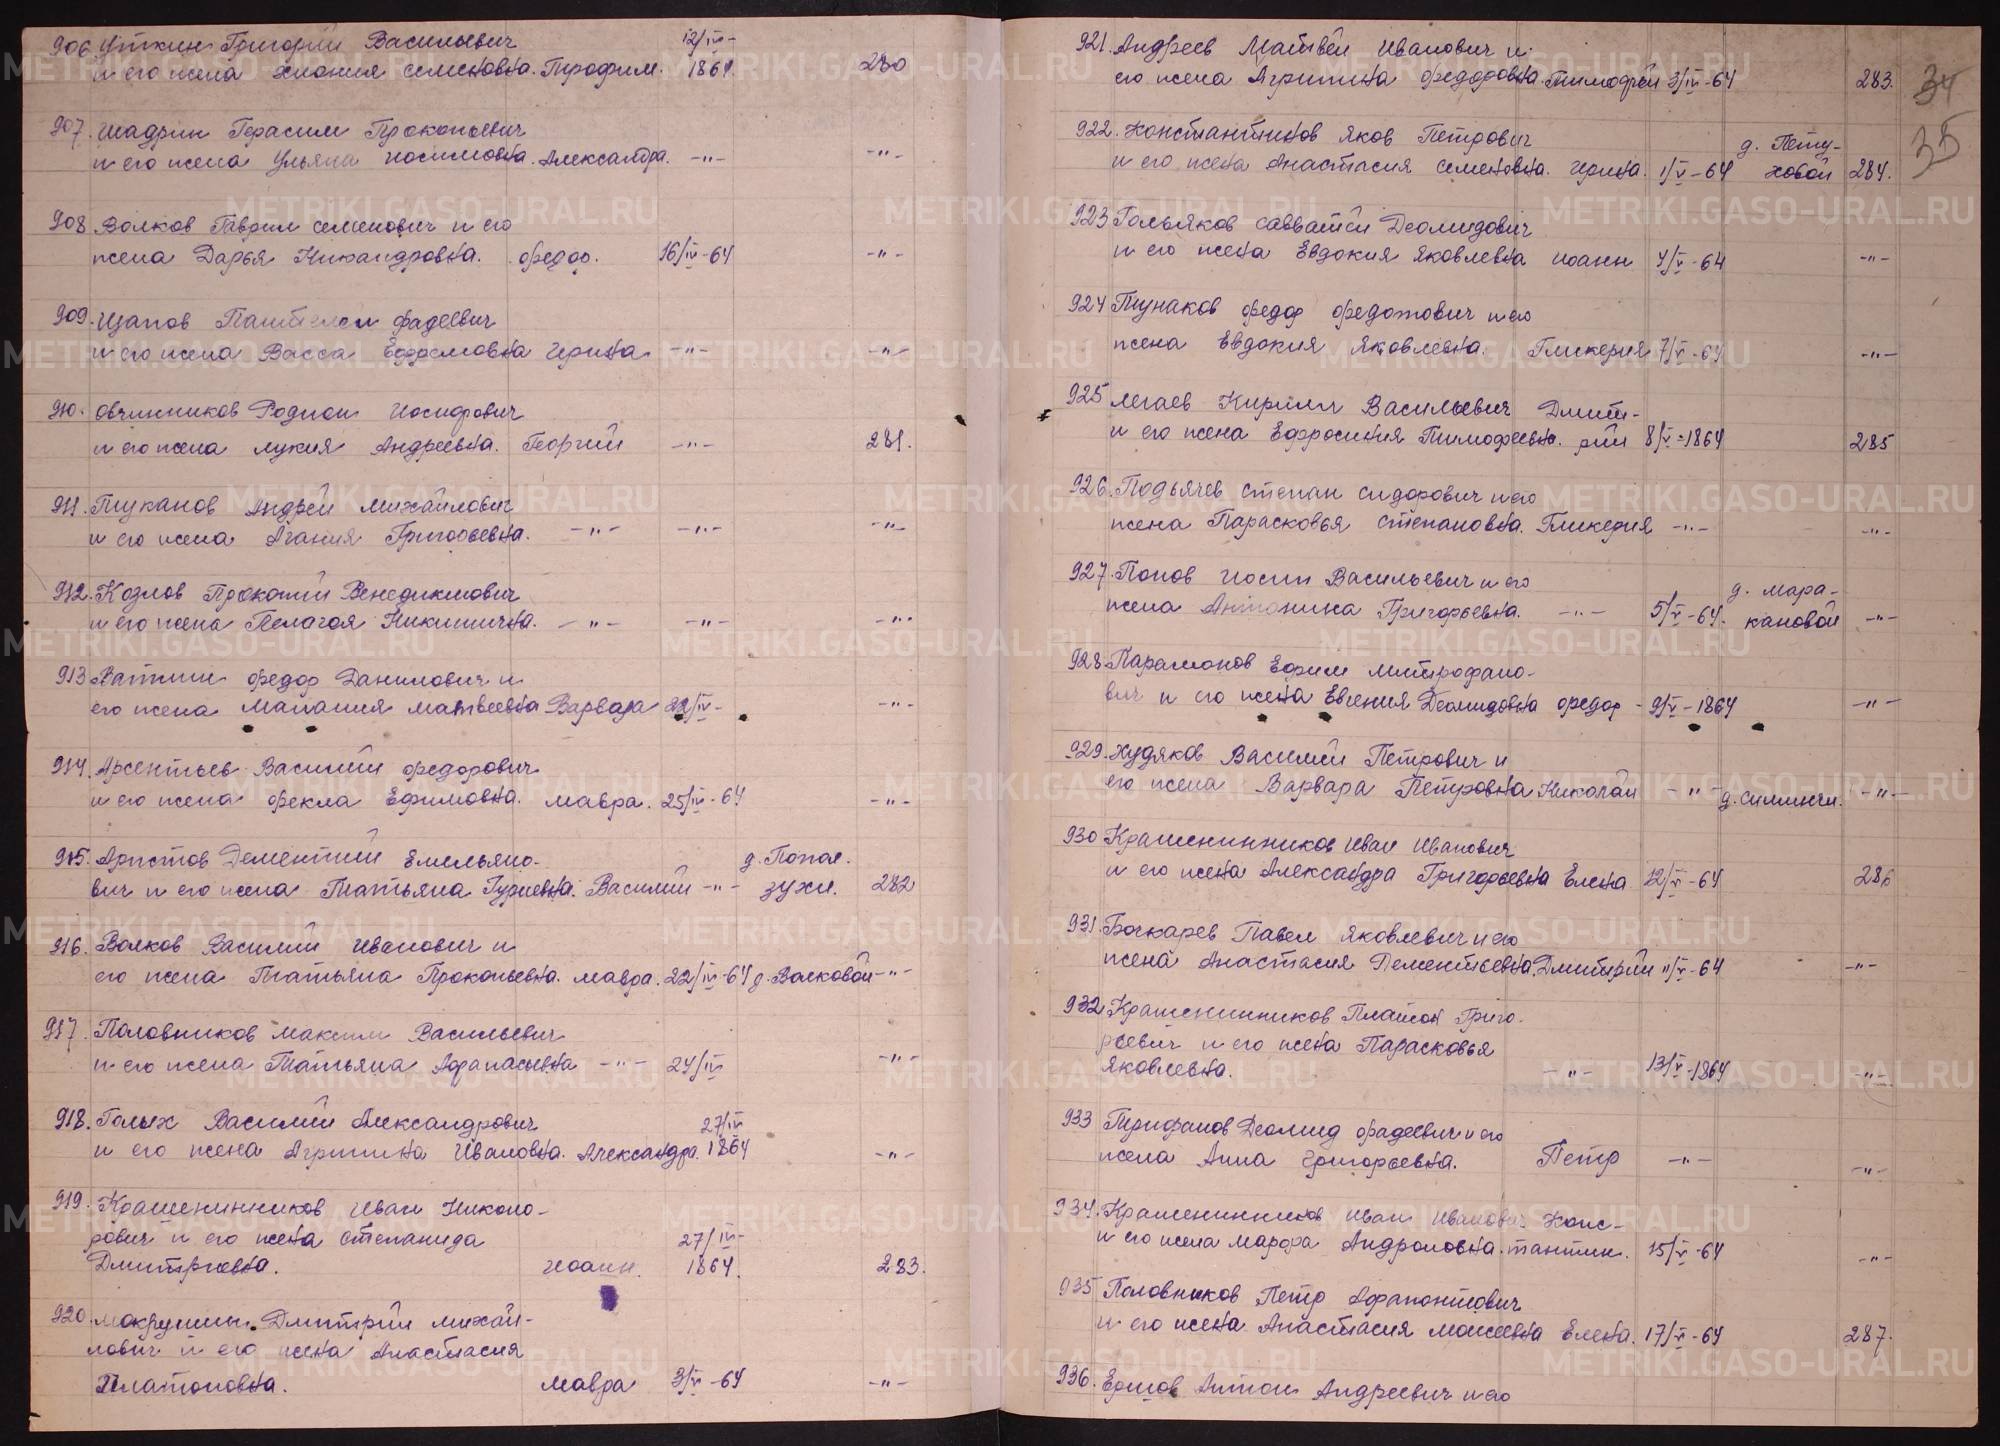 906 Уткин Григорий Васильевич 12/IV-
и его жена Хиония Семеновна. Трофим. 1864 280
907. Шадрин Герасим Прокопьевич
и его жена Ульяна Иосимовна. Александра. -"- -"-
908 Волков Гаврил Семенович и его
жена Дарья Никандровна. Федор. 16/IV-64 -"-
909. Щапов Пантелей Фадеевич
и его жена Васса Ефремовна Ирина -"- -"-
910. Овчинников Родион Иосифович
и его жена Лукия Андреевна. Георгий -"- 281.
911. Пуканов Андрей Михайлович
и его жена Агания Григорьевна. -"- -"- -"-
912. Козлов Прокопий Венедиктович
и его жена Пелагея Никитична. -"- -"- -"-
913 Федор Данилович и
его жена Матвеевна Варвара 22/IV- -"-
914. Арсентьев Василий Федорович
и его жена Фекла Ефимовна. Мавра. 25/IV-64 -"-
915. Аристов Дементий Емельяно- д. Попол.
вич и его жена Татьяна Гуриевна. Василий -"- зухи. 282
916. Волков Василий Иванович и
его жена Татьяна Прокопьевна. Мавра. 22/IV-64 д. Волковой -"-
917. Половников Максим Васильевич
и его жена Татьяна Афанасьевна -"- 24/IV -"-
918. Голых Василий Александрович 27/IV
и его жена Агрипина Ивановна. Александра. 1864 -"-
919. Крашенинников Иван Николо-
рович и его жена Степанида 27/IV-
Дмитриевна. Иоанн. 1864. 283.
920. Мокрушин Дмитрий Михай-
лович и его жена Анастасия
Платоновна. Мавра 3/V-64 -"-
921. Андреев Матвей Иванович и
его жена Агрипина Федоровна. Тимофей 3/IV-64 283. 34
922. Константинов Яков Петрович д. Пету- 35
и его жена Анастасия Семеновна. Ирина. 1/V-64 ховой 284.
923 Гольяков Савватей Деомидович
и его жена Евдокия Яковлевна Иоанн 4/V-64 -"-
924 Тунаков Федор Федотович и его
жена Евдокия Яковлевна. Гликерия 7/V-64 -"-
925 Легаев Кирилл Васильевич Дмит-
и его жена Ефросиния Тимофеевна. рий 8/V-1864 285
926. Подьячев Степан Сидорович и его
жена Парасковья Степановна. Гликерия -"- -"-
927. Попов Иосип Васильевич и его д. Мара-
жена Антонина Григорьевна. -"- 5/V-64. кановой -"-
928. Парамонов Ефим Митрофано-
вич и его жена Евгения Деомидовна Федор - 9/V-1864 -"-
929. Худяков Василий Петрович и
его жена Варвара Петровна Николай -"- д. Силинги. -"-
930 Крашенинников Иван Иванович
и его жена Александра Григорьевна Елена 12/V-64 286
931 Бочкарев Павел Яковлевич и его
жена Анастасия Дементьевна. Дмитрий 11/V-64 -"-
932 Крашенинников Платон Григо-
рьевич и его жена Парасковья
Яковлевна. -"- 13/V-1864 -"-
933 Трифанов Деомид Фадеевич и его
жена Анна Григорьевна. Петр -"- -"-
934. Крашенинников Иван Иванович Конс-
и его жена Марфа Андроновна. тантин. 15/V-64 -"-
935 Половников Петр Афапонтович
и его жена Анастасия Моисеевна Елена. 17/V-64 287.
936. Ершов Антон Андреевич и его